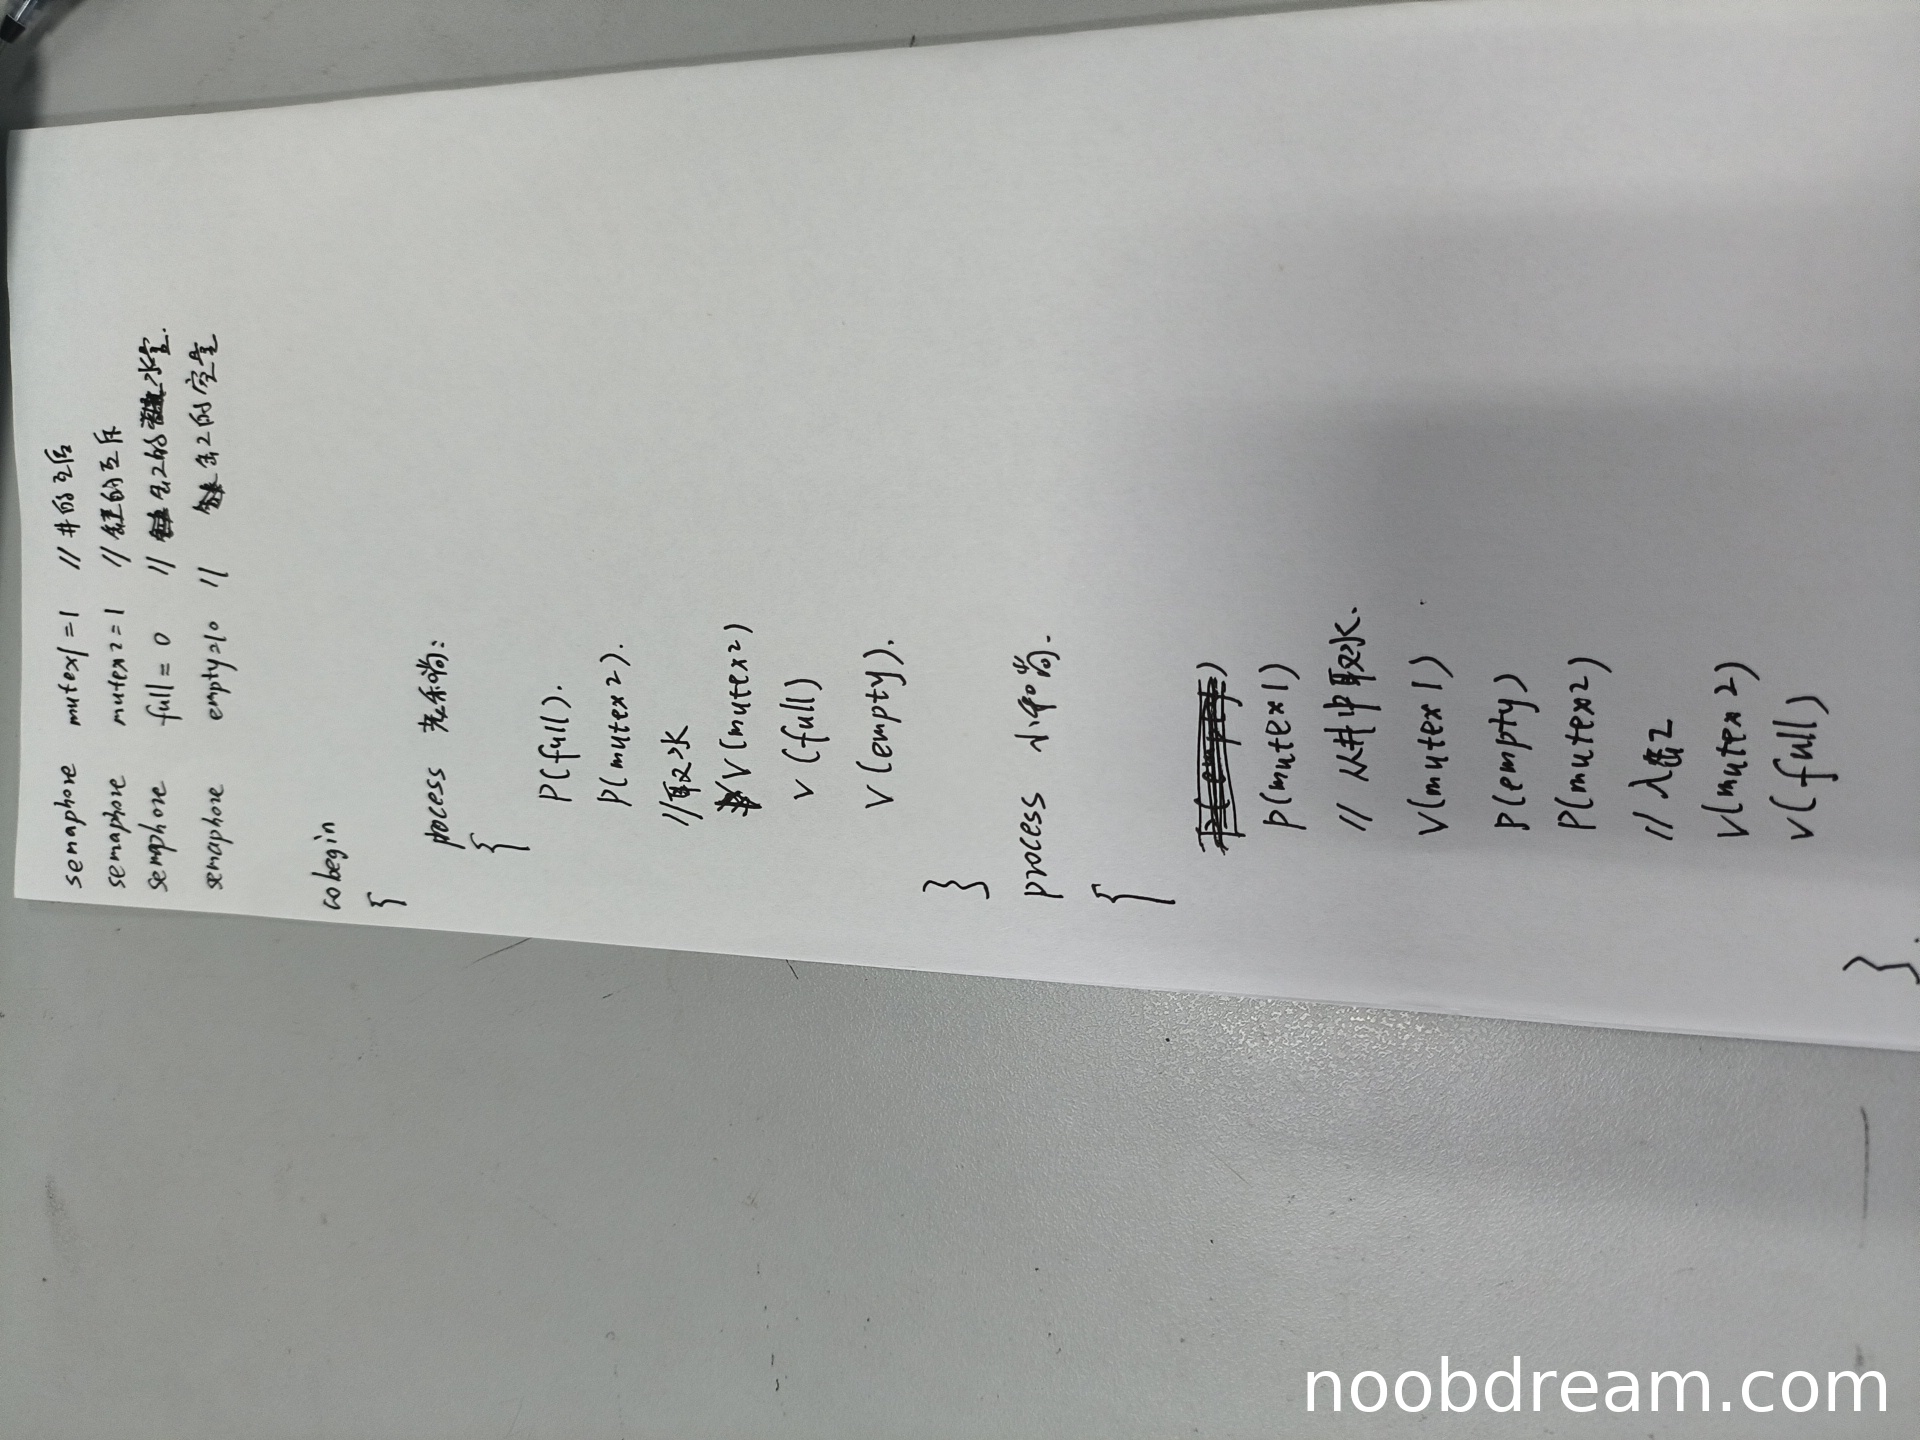 semaphore mutex1 = 1 // 井的互斥
semaphore mutex2 = 1 // 缸的互斥
semaphore full = 0 // 缸的水量.
semaphore empty = 10 // 缸的空量
cobegin
{
process 老和尚:
{
P(full).
P(mutex2).
//取水
V(mutex2)
V(full)
V(empty).
}
process 小和尚.
{
P(mutex1)
// 从井中取水.
V(mutex1)
P(empty)
P(mutex2)
// 入缸
V(mutex2)
V(full)
}.
noobdream.com